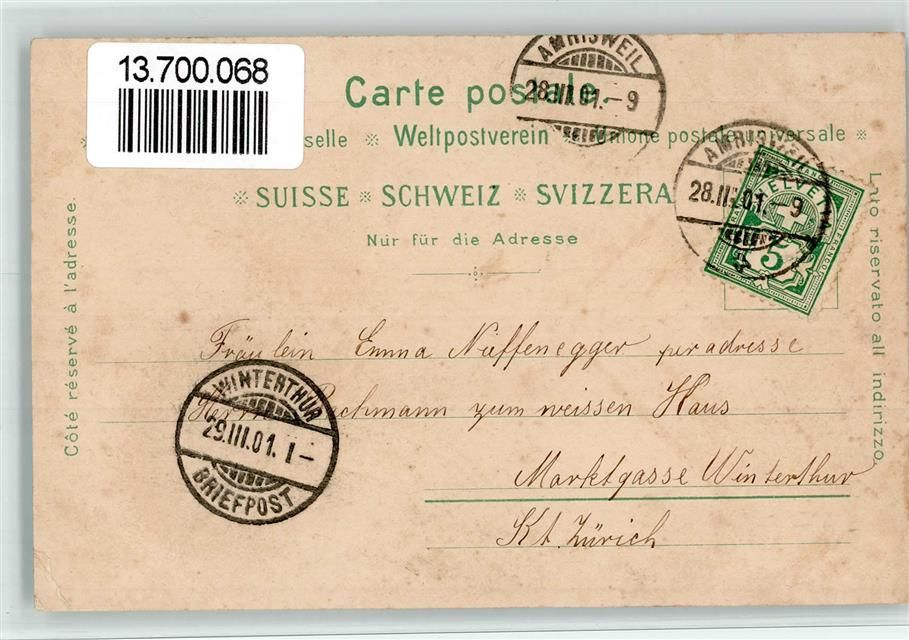 13.700.068
AMRISWEIL
28.III.01.-9
Carte postale
selle ※ Weltpostverein ※ Unione postale universale ※
AMRISWEIL
28.III.01.-9
HELVETIA
FRANCO
5
※ SUISSE ※ SCHWEIZ ※ SVIZZERA
Nur für die Adresse
Côté réservé à l'adresse.
Lato riservato all indirizzo.
Fräulein Emma Näffenegger per adresse
Herrn Bachmann zum weissen Haus
Marktgasse Winterthur
Kt. Zürich
WINTERTHUR
29.III.01. I-
BRIEFPOST